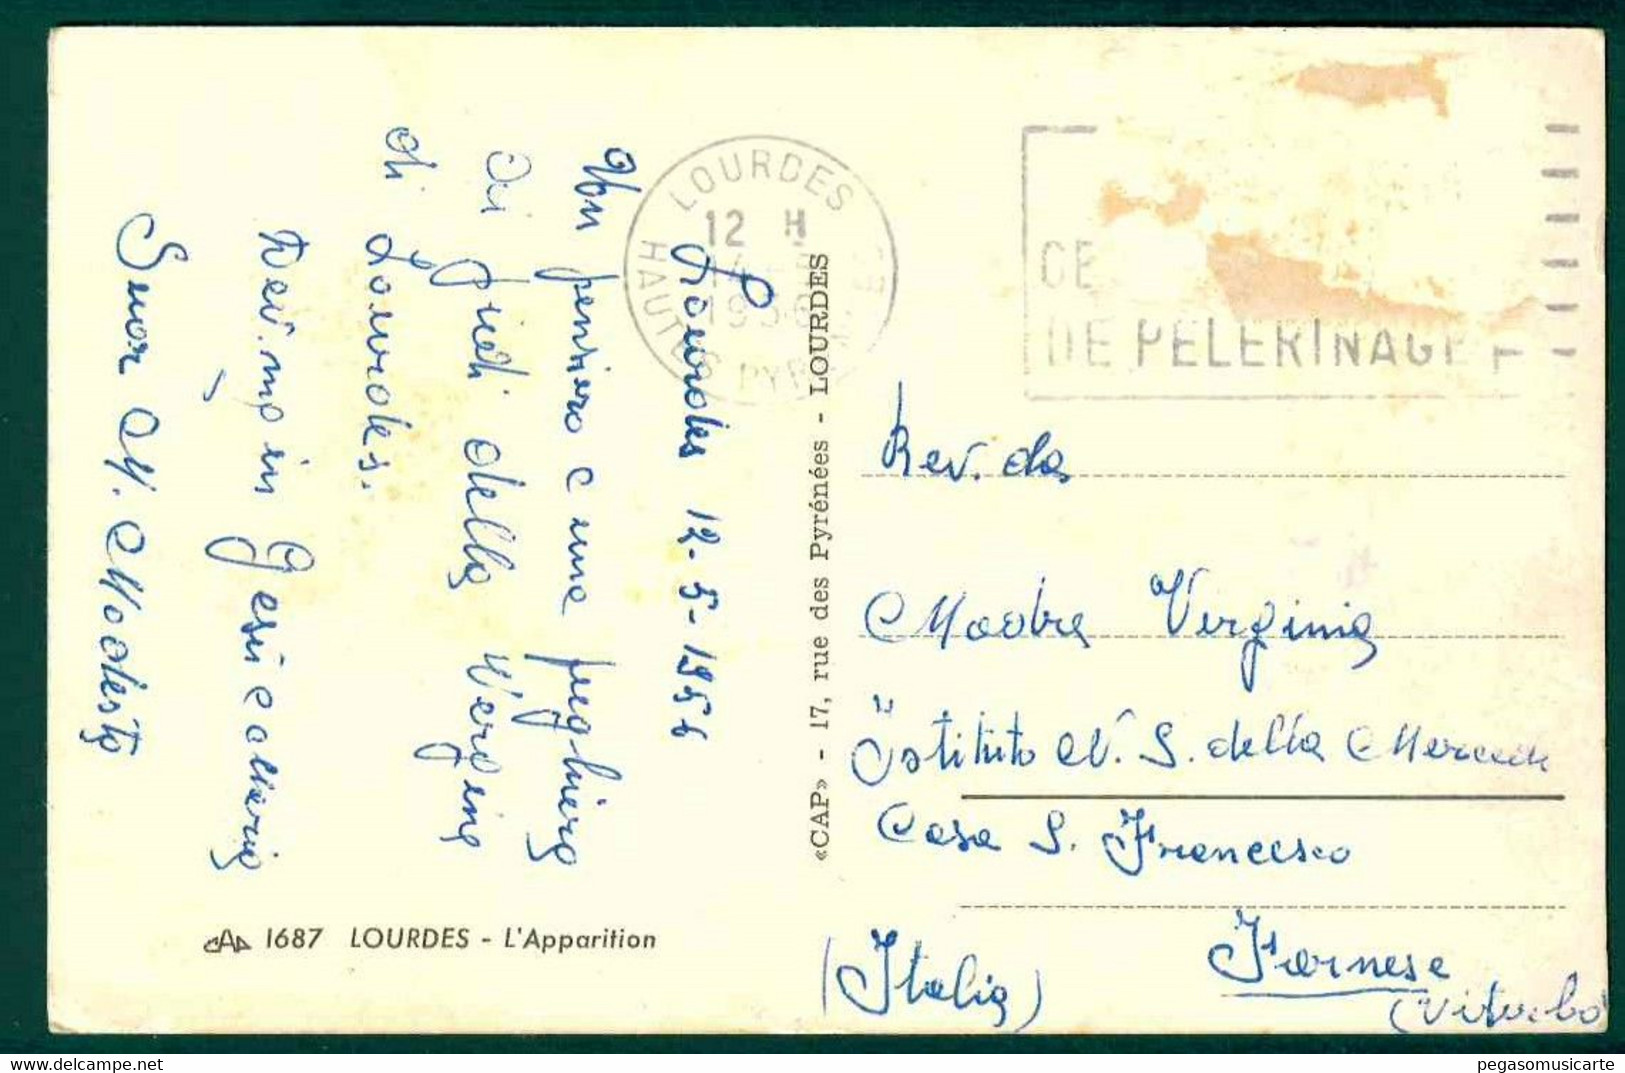 Lourdes 12-5-1956
Un pensiero e una preghiera
ai piedi della Vergine
di Lourdes.
Dev.ma in Gesù e Maria
Suor M. Modesta
LOURDES
12 H
14 - 5
1956
HAUTES PYR
CE
DE PELERINAGE
«CAP» - 17, rue des Pyrénées - LOURDES
Rev. da
Madre Virginia
Istituto N. S. della Mercede
Casa S. Francesco
Farnese
(Viterbo
(Italia)
CAP 1687 LOURDES - L'Apparition
pegasomusicarte